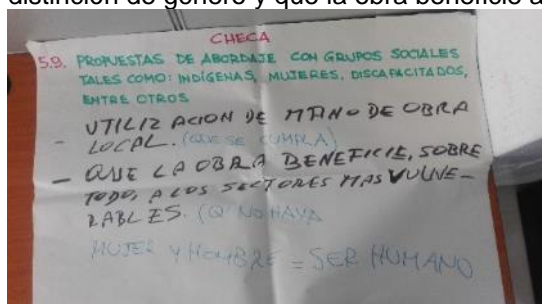 distinción de género y que la obra beneficie a
CHECA
5.9. PROPUESTAS DE ABORDAJE CON GRUPOS SOCIALES
TALES COMO: INDÍGENAS, MUJERES, DISCAPACITADOS,
ENTRE OTROS
- UTILIZACION DE MANO DE OBRA
LOCAL. (QUE SE CUMPLA)
- QUE LA OBRA BENEFICIE, SOBRE
TODO, A LOS SECTORES MAS VULNE-
RABLES. (Q' NO HAYA
MUJER Y HOMBRE = SER HUMANO